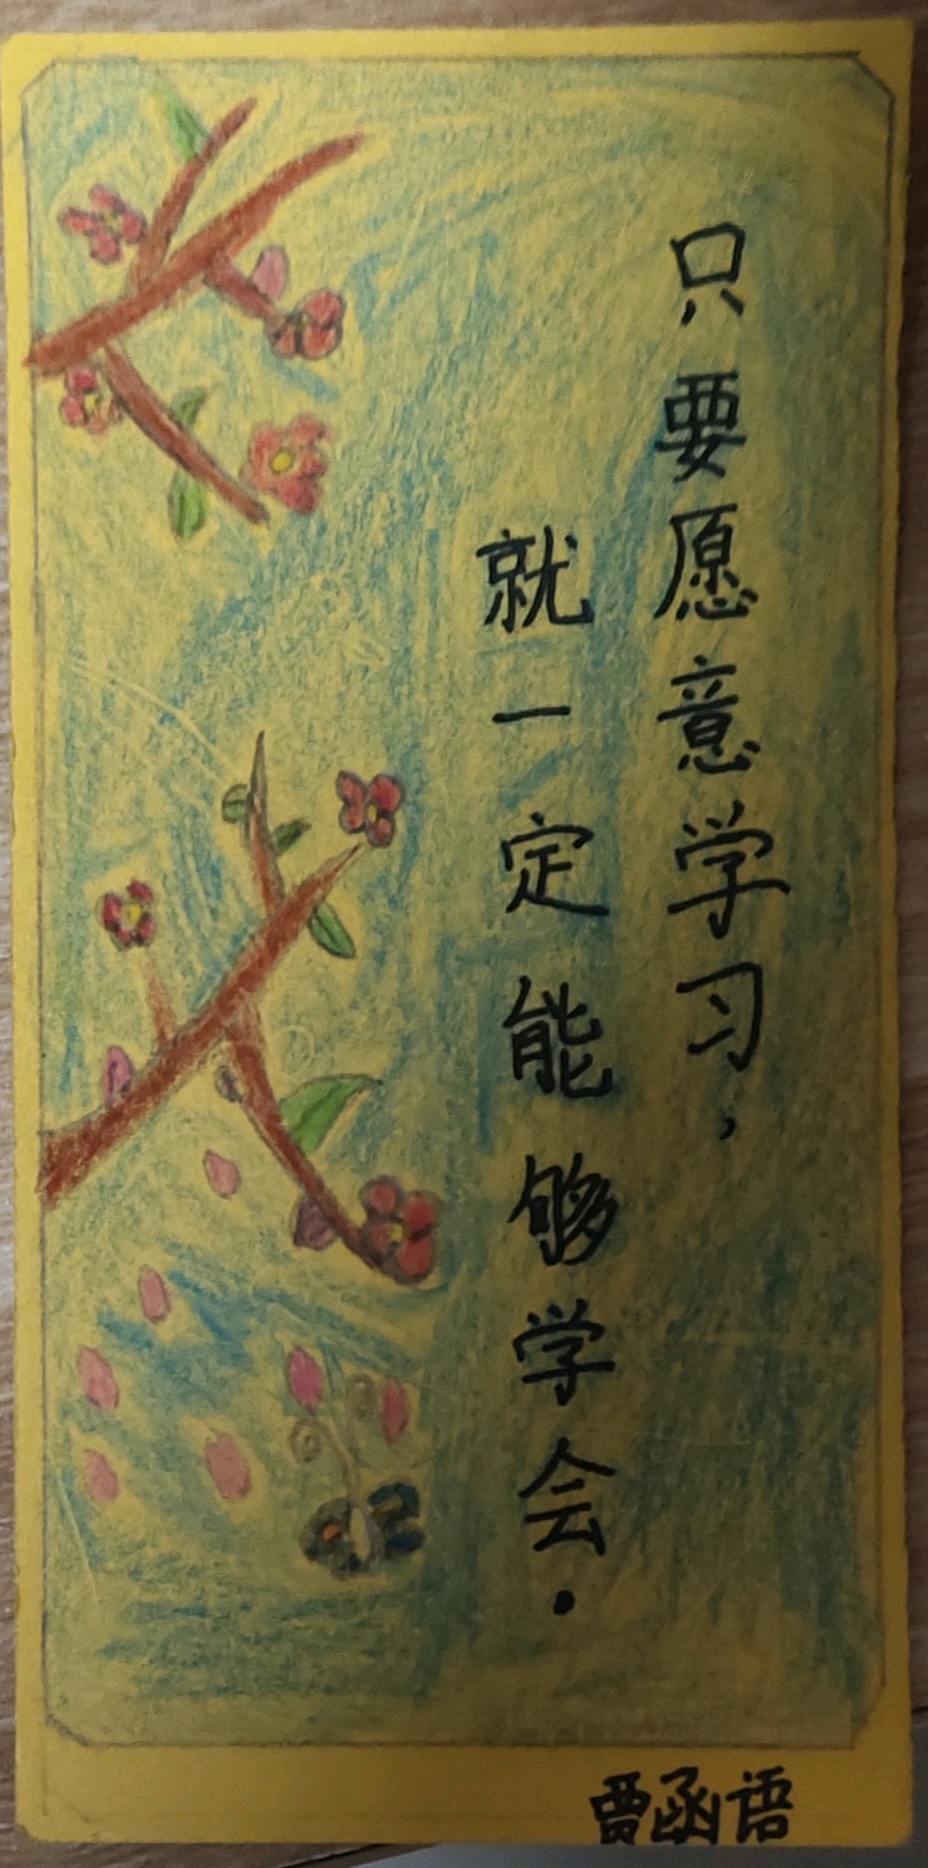 只要愿意学习，
就一定能够学会.
曹函语